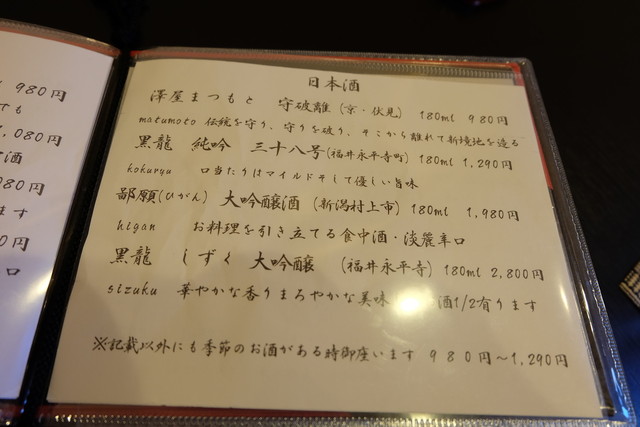 980円
でも
,080円
酒
980円
ます
0円
口
日本酒
澤屋まつもと 守破離(京・伏見) 180ml 980円
matumoto 伝統を守り、守りを破り、そこから離れて新境地を造る
黒龍 純吟 三十八号(福井永平寺町) 180ml 1,290円
kokuryu 口当たりはマイルドそして優しい旨味
鄙願(ひがん) 大吟醸酒 (新潟村上市) 180ml 1,980円
higan お料理を引き立てる食中酒・淡麗辛口
黒龍 しずく 大吟醸 (福井永平寺) 180ml 2,800円
sizuku 華やかな香りまろやかな美味 酒1/2有ります
※記載以外にも季節のお酒がある時御座います 980円～1,290円